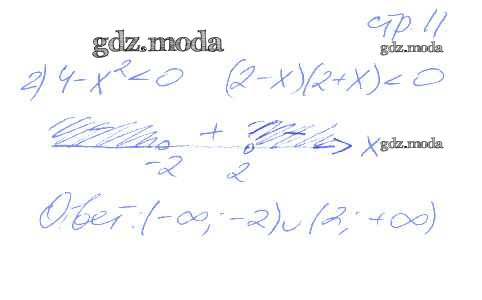 стр. 11
gdz.moda
gdz.moda
2) 4-x²<0 (2-x)(2+x)<0
+ x gdz.moda
-2 2
Ответ: (-∞; -2)∪(2; +∞)